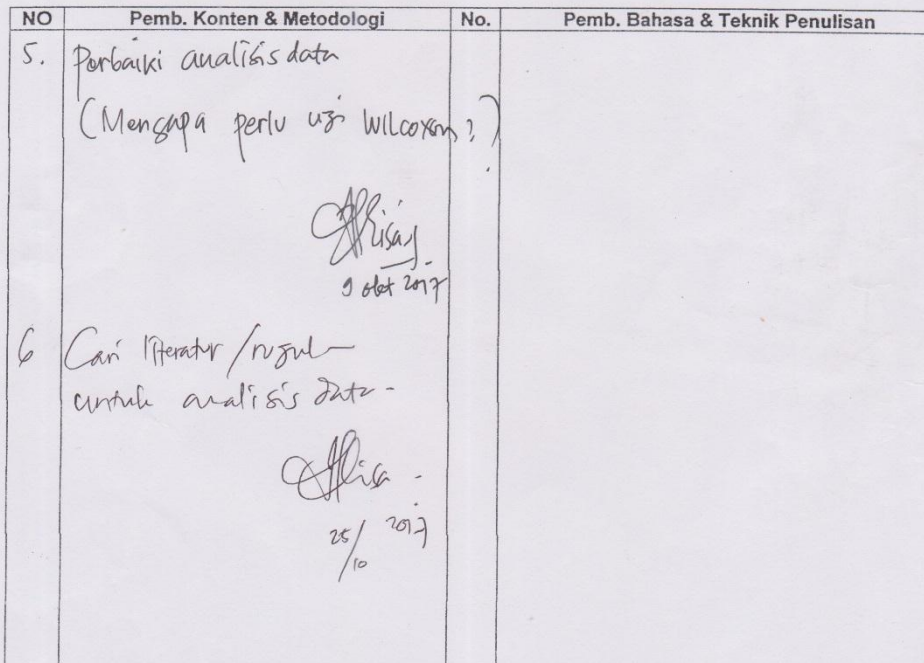 NO Pemb. Konten & Metodologi No. Pemb. Bahasa & Teknik Penulisan
5. Perbaiki analisis data
(Mengapa perlu uji Wilcoxon ?)
9 okt 2017
6 Cari literatur /
untuk analisis data -
25/10 2017